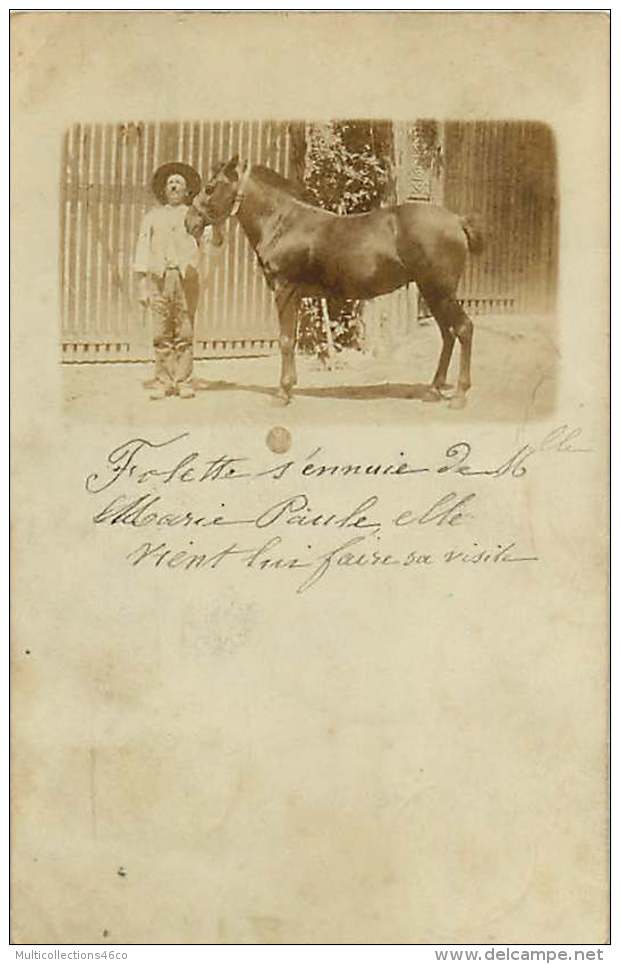 Folette s'ennuie de Mlle
Marie Paule, elle
vient lui faire sa visite
Multicollections46co
www.delcampe.net